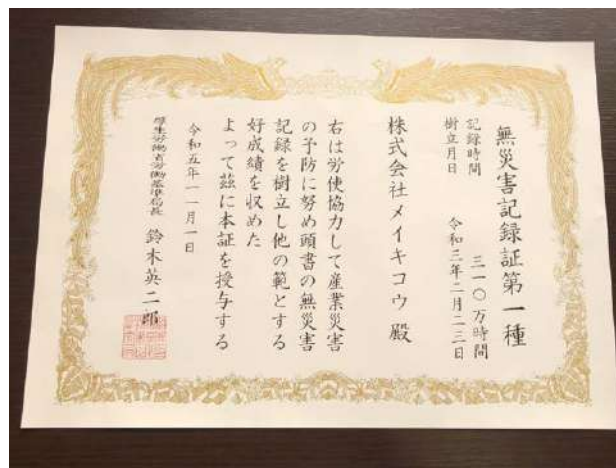 無災害記録証第一種
記録時間 三一〇万時間
樹立月日 令和三年二月二三日
株式会社メイキコウ 殿
右は労使協力して産業災害
の予防に努め頭書の無災害
記録を樹立し他の範とする
好成績を収めた
よって茲に本証を授与する
令和五年一一月一日
厚生労働省労働基準局長 鈴木英二郎